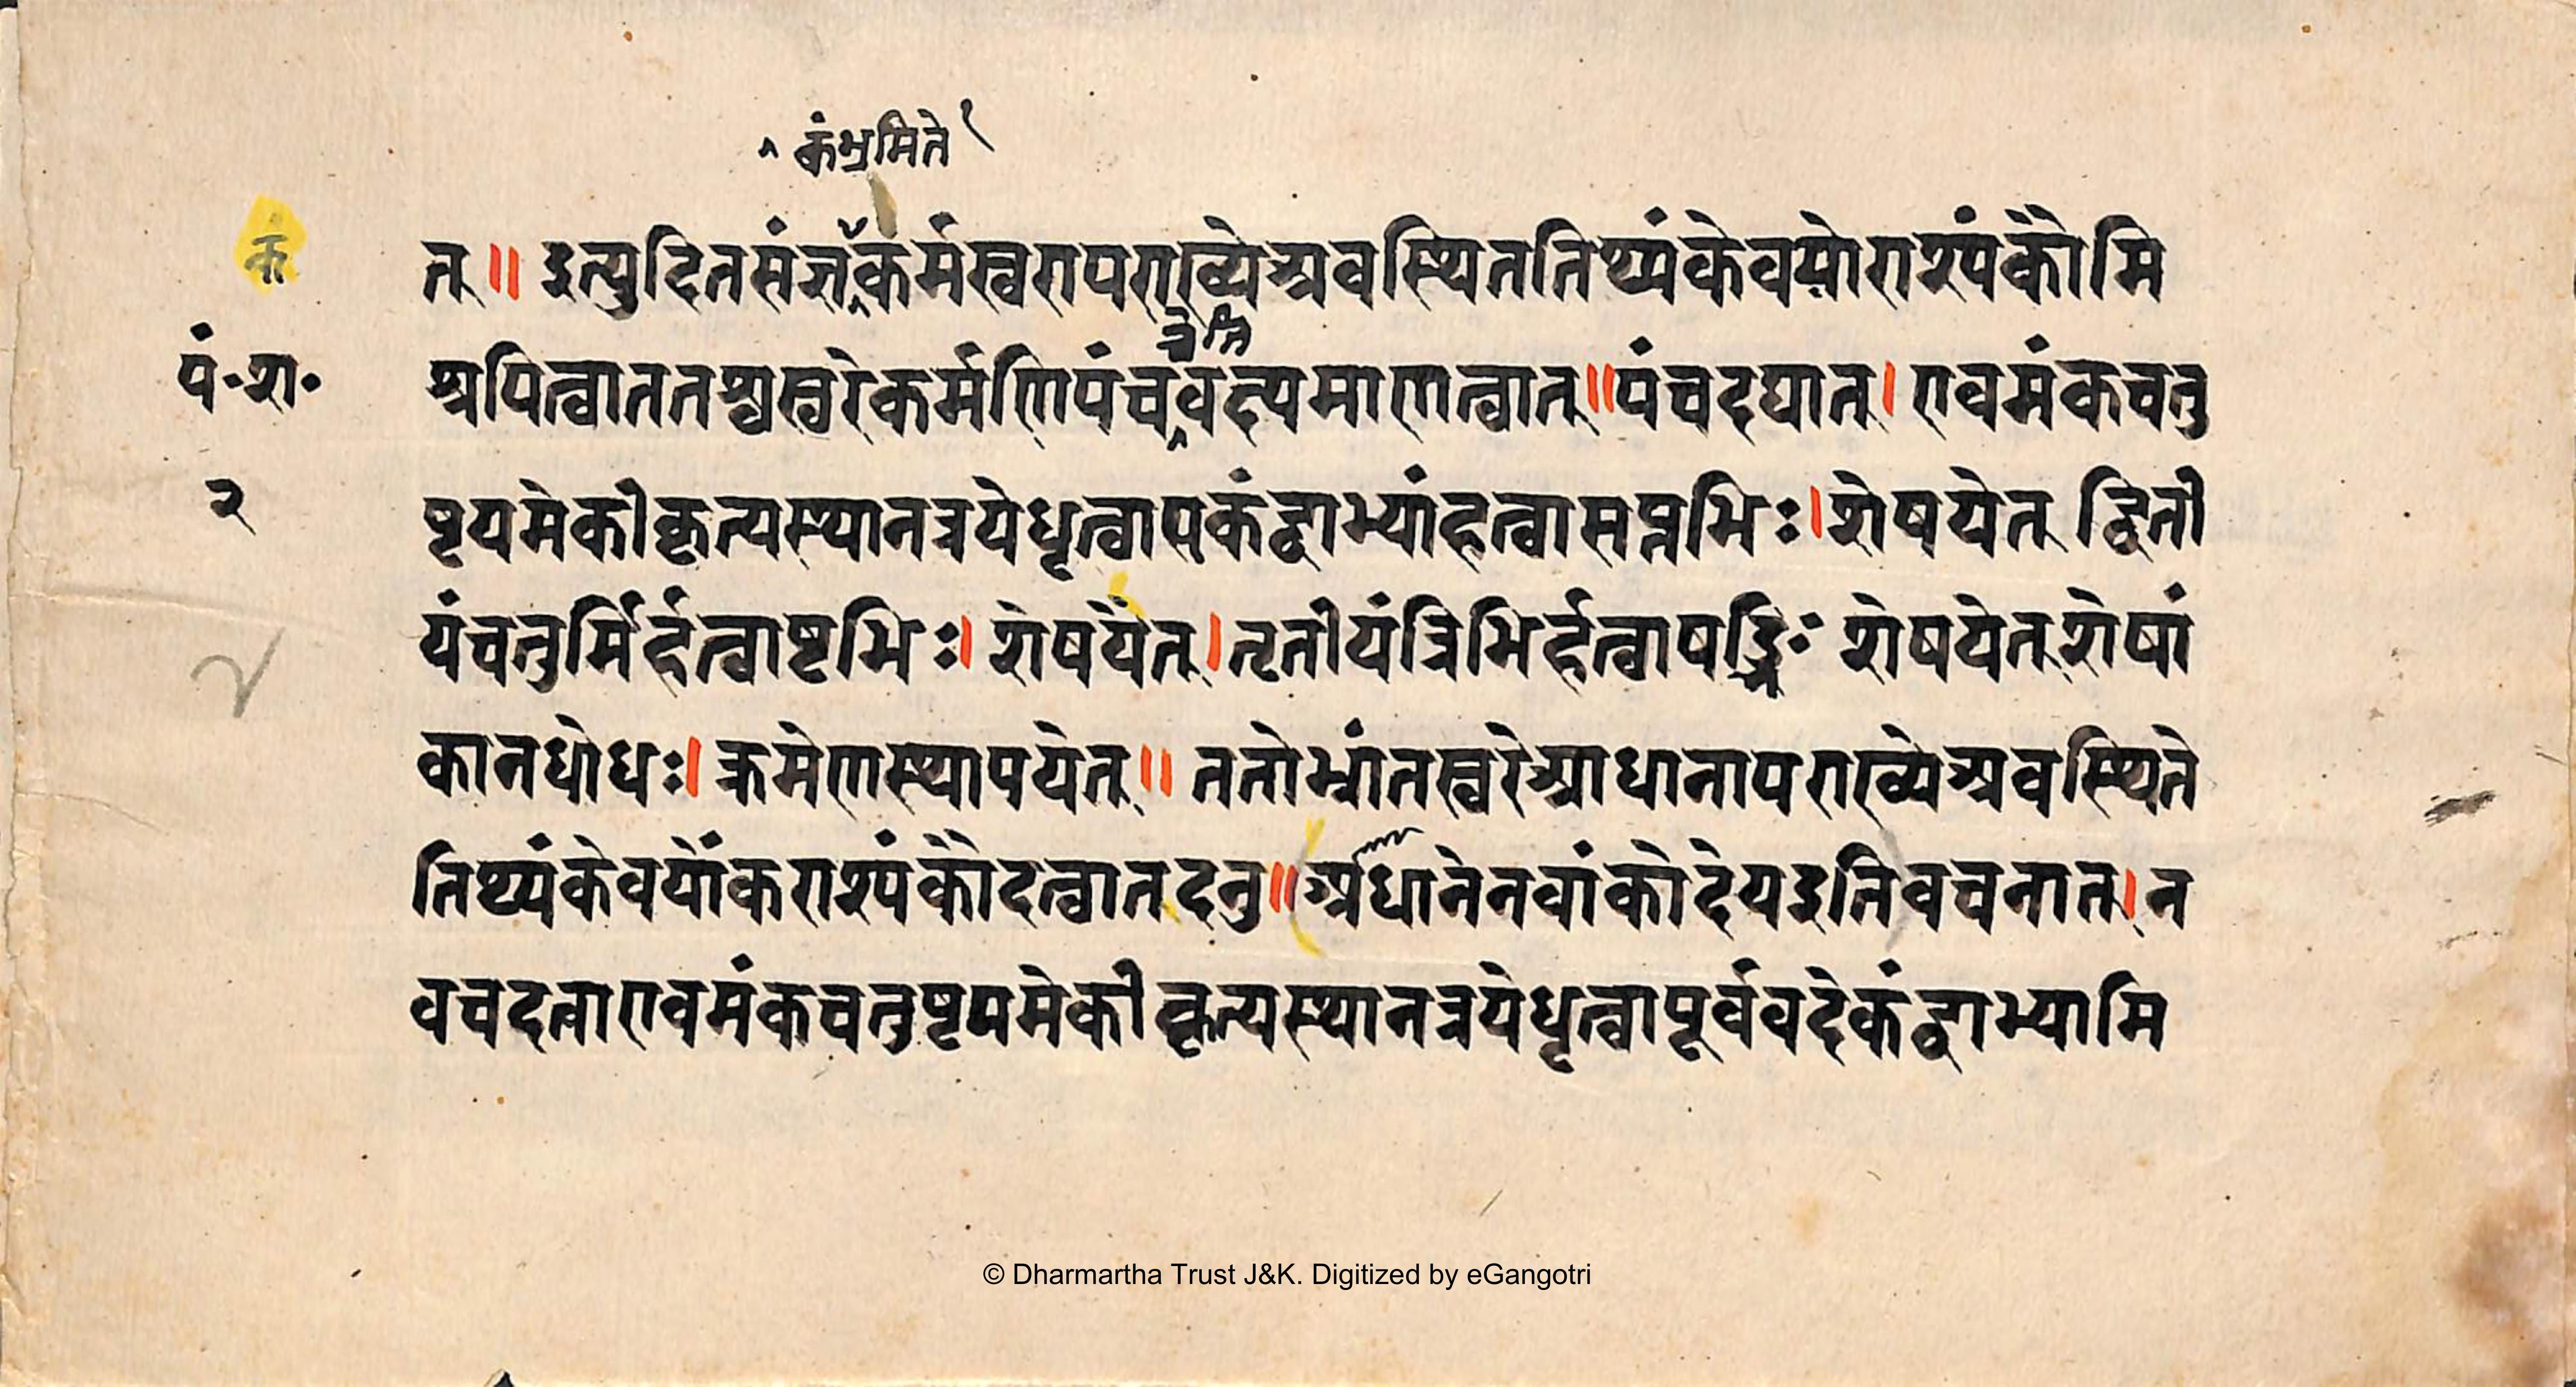 कंभ्रमिते
कं
त् ॥ इत्युदितसंज्ञकर्मस्वरापराख्येअवस्थिततिथ्यंकेवयोराश्यंकौमि
पं·रा·
श्रपित्वाततश्चस्वरेकर्मणिपंचवक्ष्यमाणत्वात्॥पंचदद्यात्। एवमंकचतु
२
ष्टयमेकीकृत्यस्थानत्रयेधृत्वाएकंद्वाभ्यांहत्वासप्तभिः।शेषयेत् द्विती
यंचतुर्भिर्हत्वाष्टभिः। शेषयेत्।तृतीयंत्रिभिर्हत्वाषड्भिः शेषयेत्शेषां
कानधोधः। क्रमेणस्थापयेत्॥ ततोभ्रांतस्वरेआधानापराख्येअवस्थिते
तिथ्यंकेवयोंकराश्यंकौदत्वातदनु॥आधानेनवांकोदेयइतिवचनात्।न
वचदत्वाएवमंकचतुष्टयमेकीकृत्यस्थानत्रयेधृत्वापूर्ववदेकंद्वाभ्यामि
© Dharmartha Trust J&K. Digitized by eGangotri